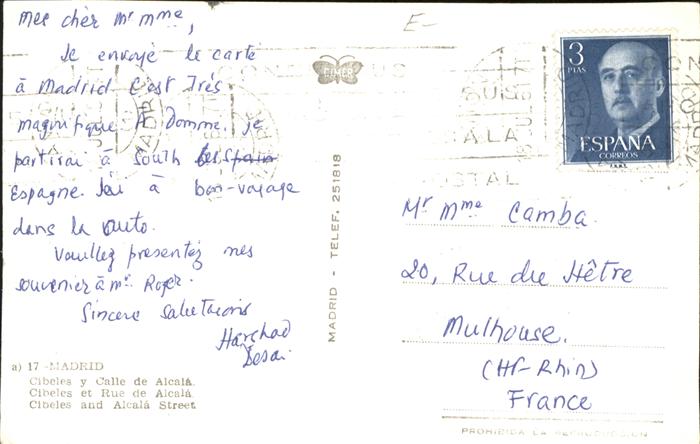 Mes chèr Mr mme,
Je envoyé le carté
à Madrid C'est Trés
magnifique A domme, je
partirai à South
Espagne. J'ai à bon-voyage
dans la auto.
Vouillez presentez mes
souvenier à mr. Roger.
Sincere salutations
Harshad
Desai
a) 17 - MADRID
Cibeles y Calle de Alcalá.
Cibeles et Rue de Alcalá.
Cibeles and Alcalá Street
MADRID - TELEF. 251818
FIMER
E-
3
PTAS
ESPAÑA
CORREOS
Mr Mme Camba.
20, Rue du Hêtre
Mulhouse.
(Ht-Rhin)
France
PROHIBIDA LA REPRODUCCION